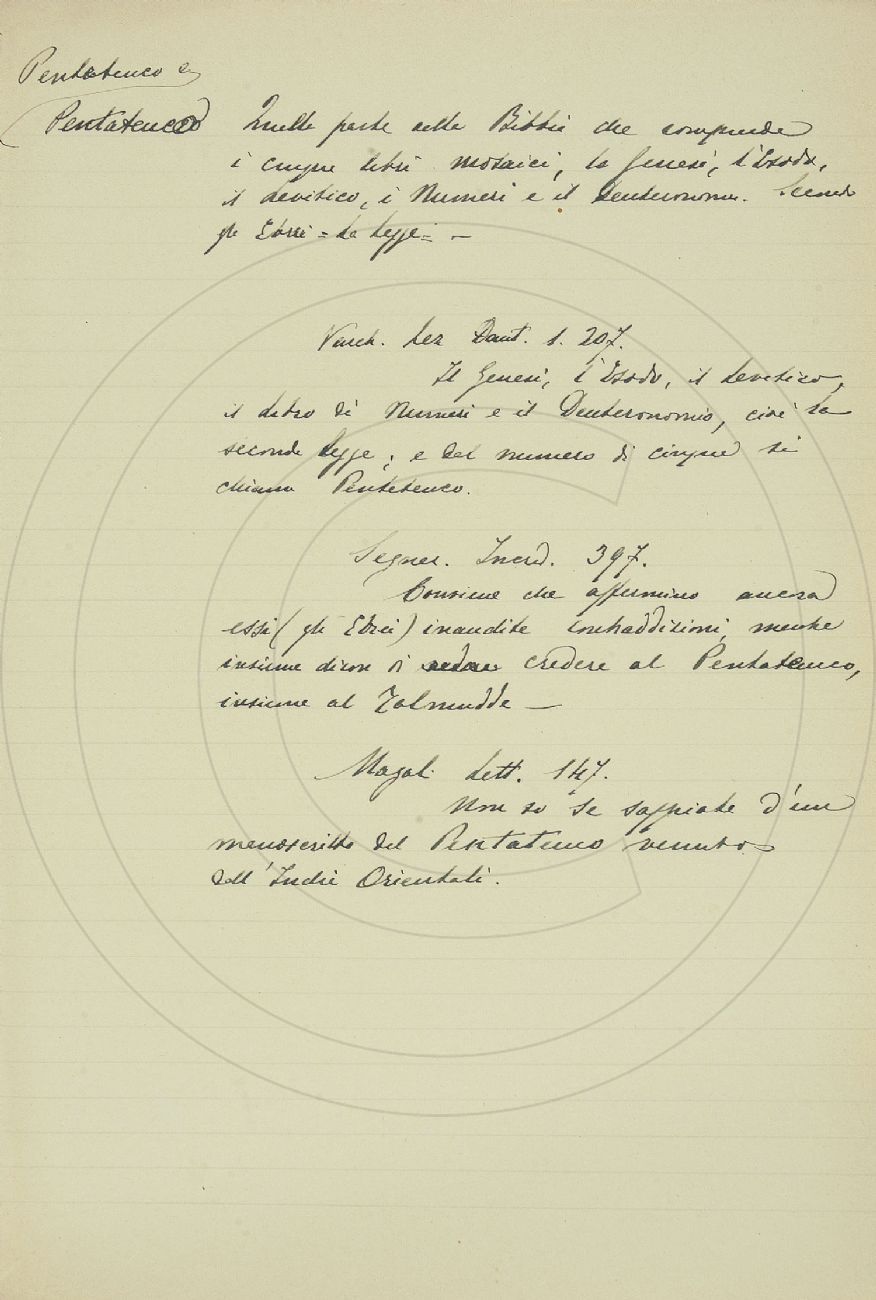 Pentateuco e
Pentateuco Quella parte della Bibbia che comprende
i cinque libri mosaici, la Genesi, l'Esodo,
il Levitico, i Numeri e il Deuteronomio. Secondo
gli Ebrei = La legge = —
Varch. Lez Dant. 1. 207.
Il Genesi, l'Esodo, il Levitico,
il Libro di Numeri e il Deuteronomio, cioè la
seconda legge; e dal numero di cinque si
chiama Pentateuco.
Segner. Incred. 397.
Conviene che affermino ancora
essi (gli Ebrei) inaudite contraddizioni, mentre
insieme dicon di credere al Pentateuco,
insieme al Talmudde —
Magal. Lett. 147.
Non so se sappiate d'un
manoscritto del Pentateuco venuto
dall'Indie Orientali.